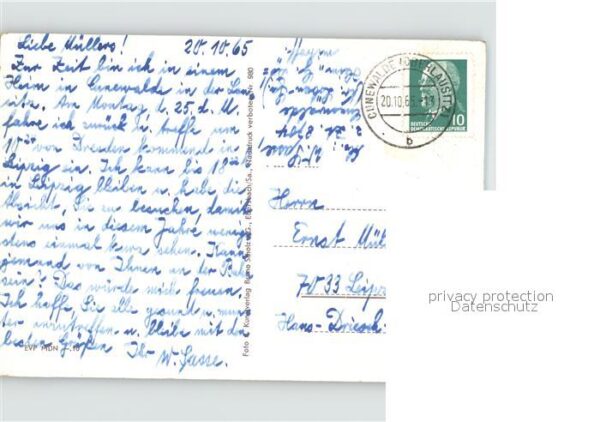 Liebe Müllers! 20.10.65
Zur Zeit bin ich in einem
Heim in Cunewalde in der Lau
sitz. Am Montag d. 25. d. M.
fahre ich zurück u. treffe um
von Dresden kommend in
Leipzig ein. Ich kann bis 18
in Leipzig bleiben u. habe die
Absicht, Sie zu besuchen, damit
wir uns in diesem Jahre wenig
stens einmal kurz sehen. Kann
jemand von Ihnen an der Bahn
sein? Das würde mich freuen.
Ich hoffe Sie alle gesund u. mun
ter anzutreffen u. bleibe mit den
besten Grüßen Ihr W. Sasse.
EVP MDN
Foto u. Kunstverlag Bruno Scholz KG., Ebersbach/Sa., Nachdruck verboten Nr. 980
CUNEWALDE (OBERLAUSITZ)
20.10.65
b
DEUTSCHE
DEMOKRATISCHE REPUBLIK
10
Herrn
Ernst Mül
7033 Leipz
Hans-Driesch-
privacy protection
Datenschutz